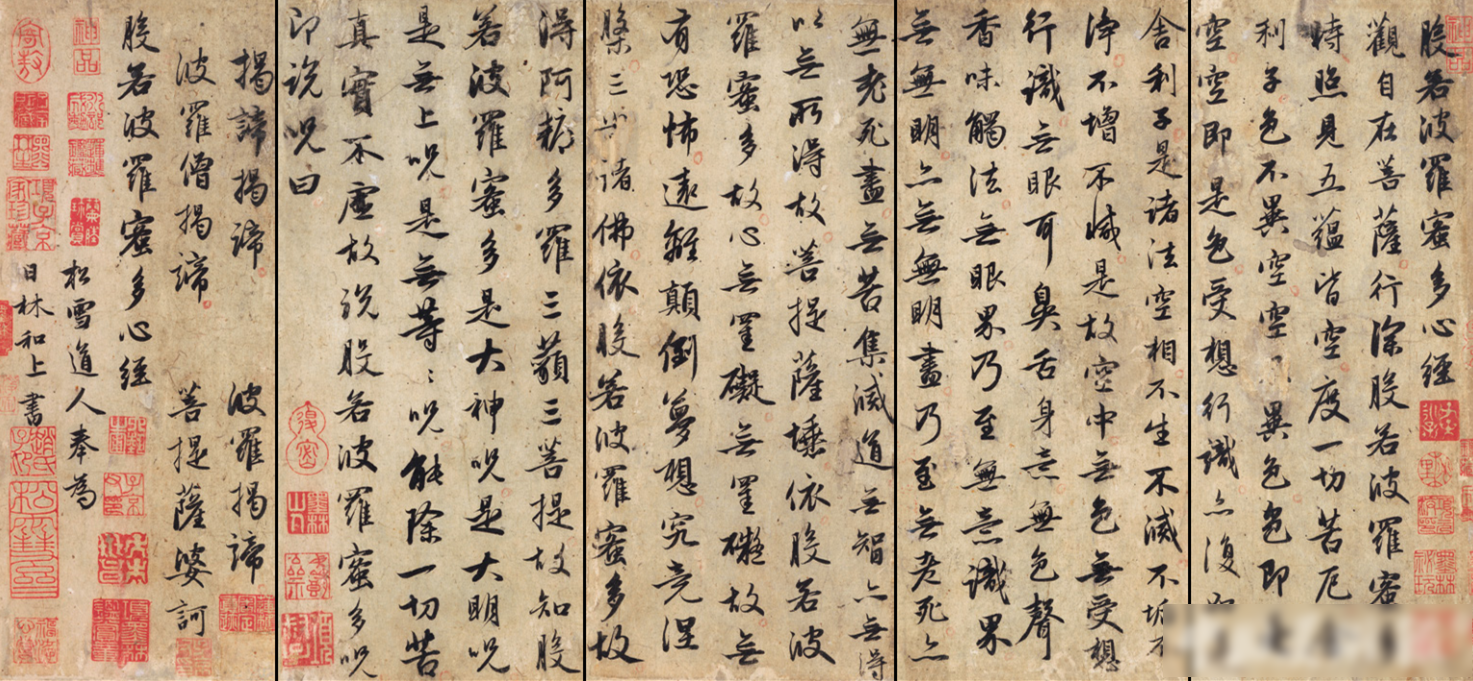 般若波羅蜜多心經
觀自在菩薩行深般若波羅蜜
時照見五蘊皆空度一切苦厄
利子色不異空空不異色色即
空空即是色受想行識亦復
舍利子是諸法空相不生不滅不垢不
淨不增不減是故空中無色無受想
行識無眼耳鼻舌身意無色聲
香味觸法無眼界乃至無意識界
無無明亦無無明盡乃至無老死亦
無老死盡無苦集滅道無智亦無得
以無所得故菩提薩埵依般若波
羅蜜多故心無罣礙無罣礙故無
有恐怖遠離顛倒夢想究竟涅
槃三世諸佛依般若波羅蜜多故
得阿耨多羅三藐三菩提故知般
若波羅蜜多是大神呪是大明呪
是無上呪是無等〻呪能除一切苦
真實不虛故說般若波羅蜜多呪
即說呪曰
揭諦揭諦 波羅揭諦
波羅僧揭諦 菩提薩婆訶
般若波羅蜜多心經
松雪道人奉為
日林和上書
神品
項子京家珍藏